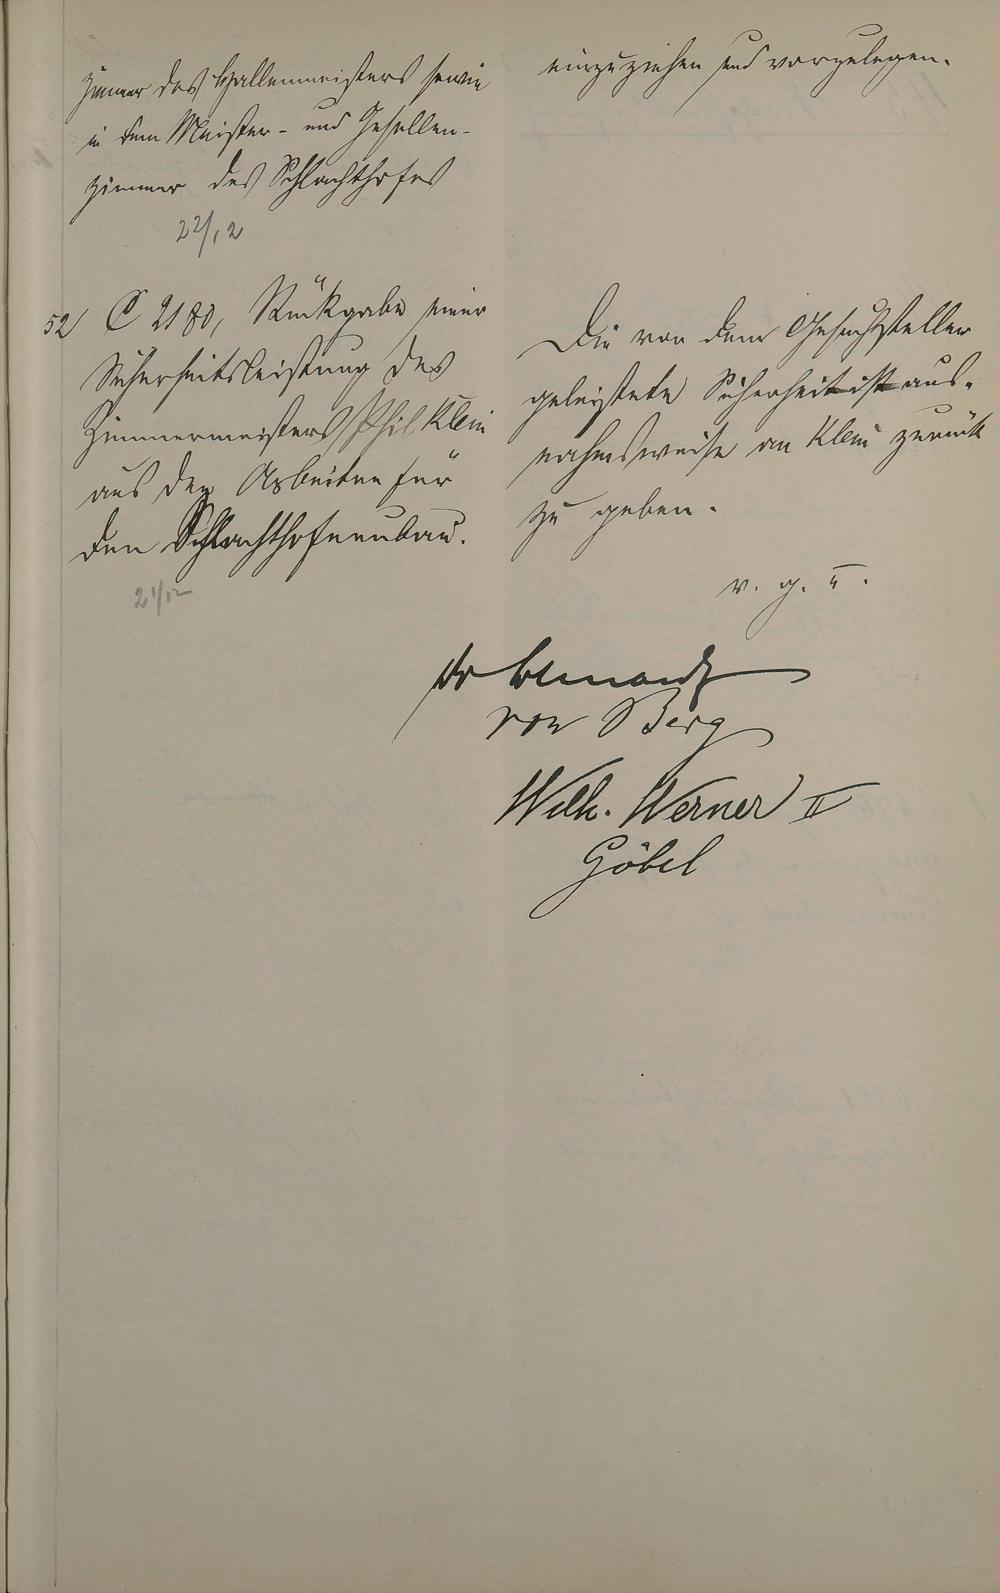 Zimmer des Hallenmeisters sowie
in dem Meister- und Gesellen-
zimmer des Schlachthofes
22/12
einzuziehen und vorzulegen.
52/ C 2180, Rückgabe einer
Sicherheitsleistung des
Zimmermeisters Phil Klein
aus den Arbeiten für
den Schlachthofneubau.
21/12
Die von dem Gesuchsteller
geleistete Sicherheit ist aus-
nahmsweise an Klein zurück
zu geben.
v. g. u.
von Berg
Wilh. Werner II
Göbel